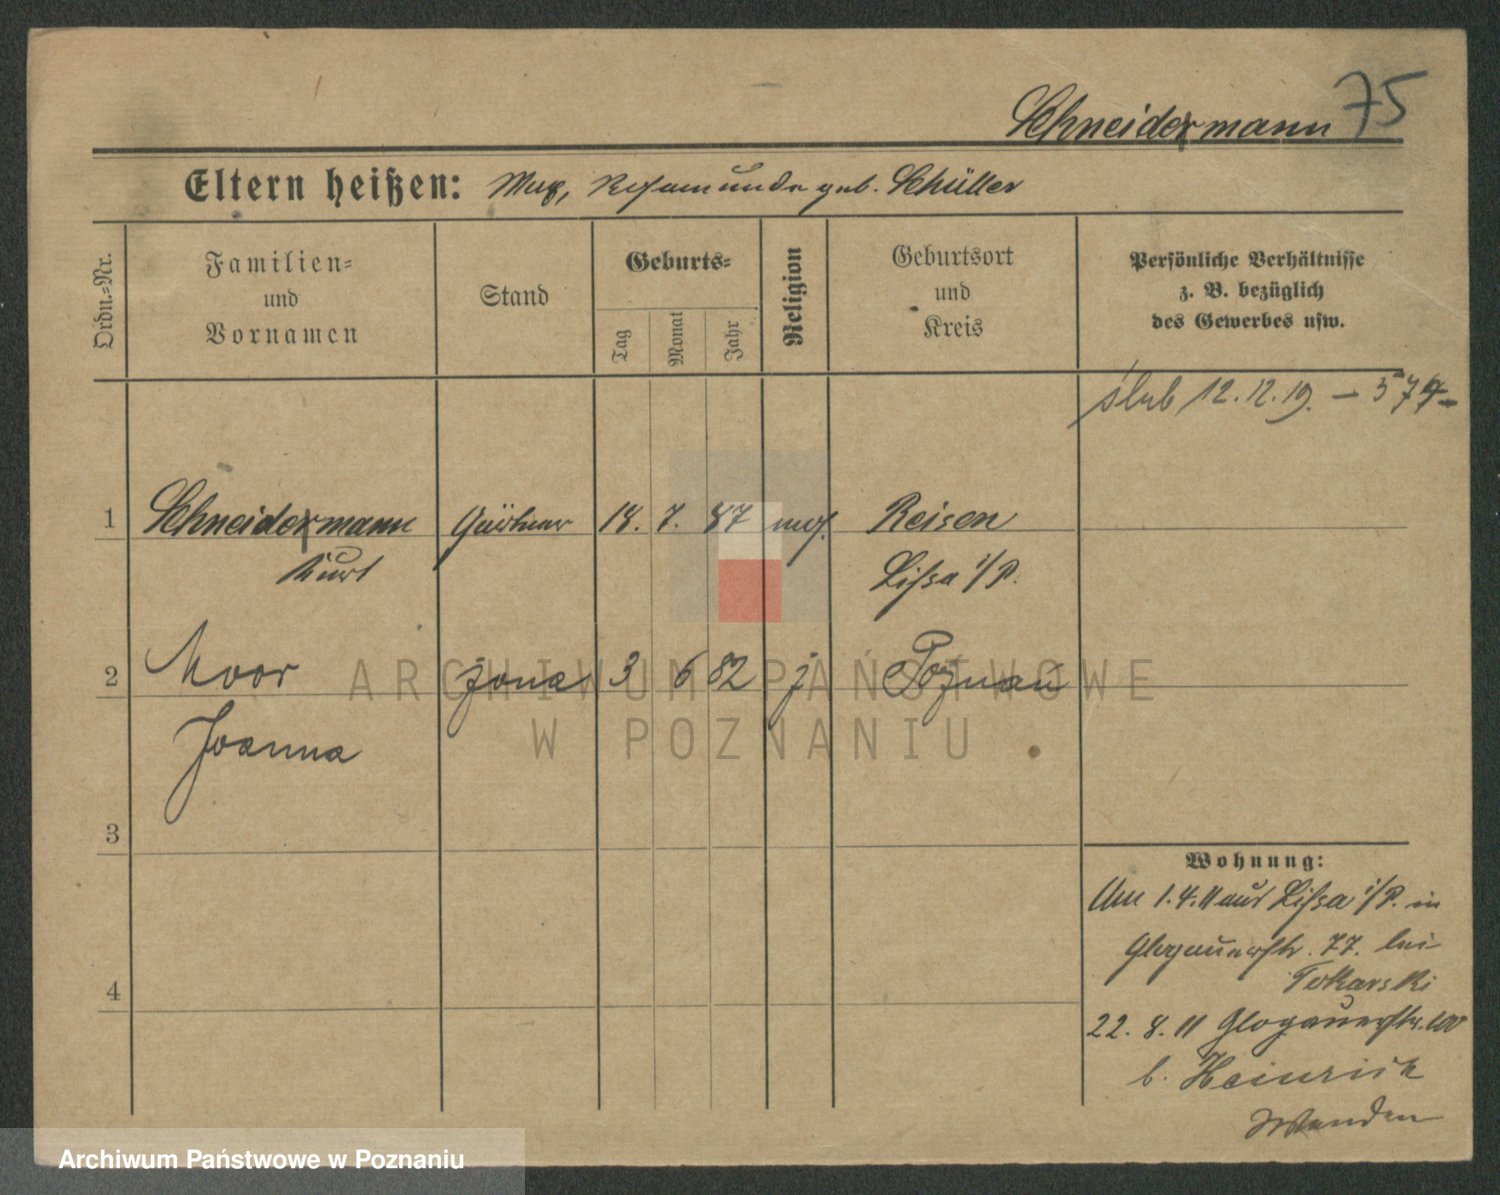 75
Schneidermann
Eltern heißen: Max, Rosamunde geb. Schüller
Ordn.=Nr.
Familien=
und
Vornamen
Stand
Geburts=
Tag
Monat
Jahr
Religion
Geburtsort
und
Kreis
Persönliche Verhältnisse
z. B. bezüglich
des Gewerbes usw.
ślub 12.12.19. – 574 –
1 Schneidermann Gärtner 18. 7. 87 mos. Reisen
Kurt Lissa i/P.
2 Moor żona 3 6 82 j Poznań
Joanna
3
4
Wohnung:
Am 1.4.11 aus Lissa i/P. in
Glogauerstr. 77. bei
Tokarski
22. 8. 11 Glogauerstr. 100
b. Heinrich
Wenden
ARCHIWUM PAŃSTWOWE
W POZNANIU
Archiwum Państwowe w Poznaniu